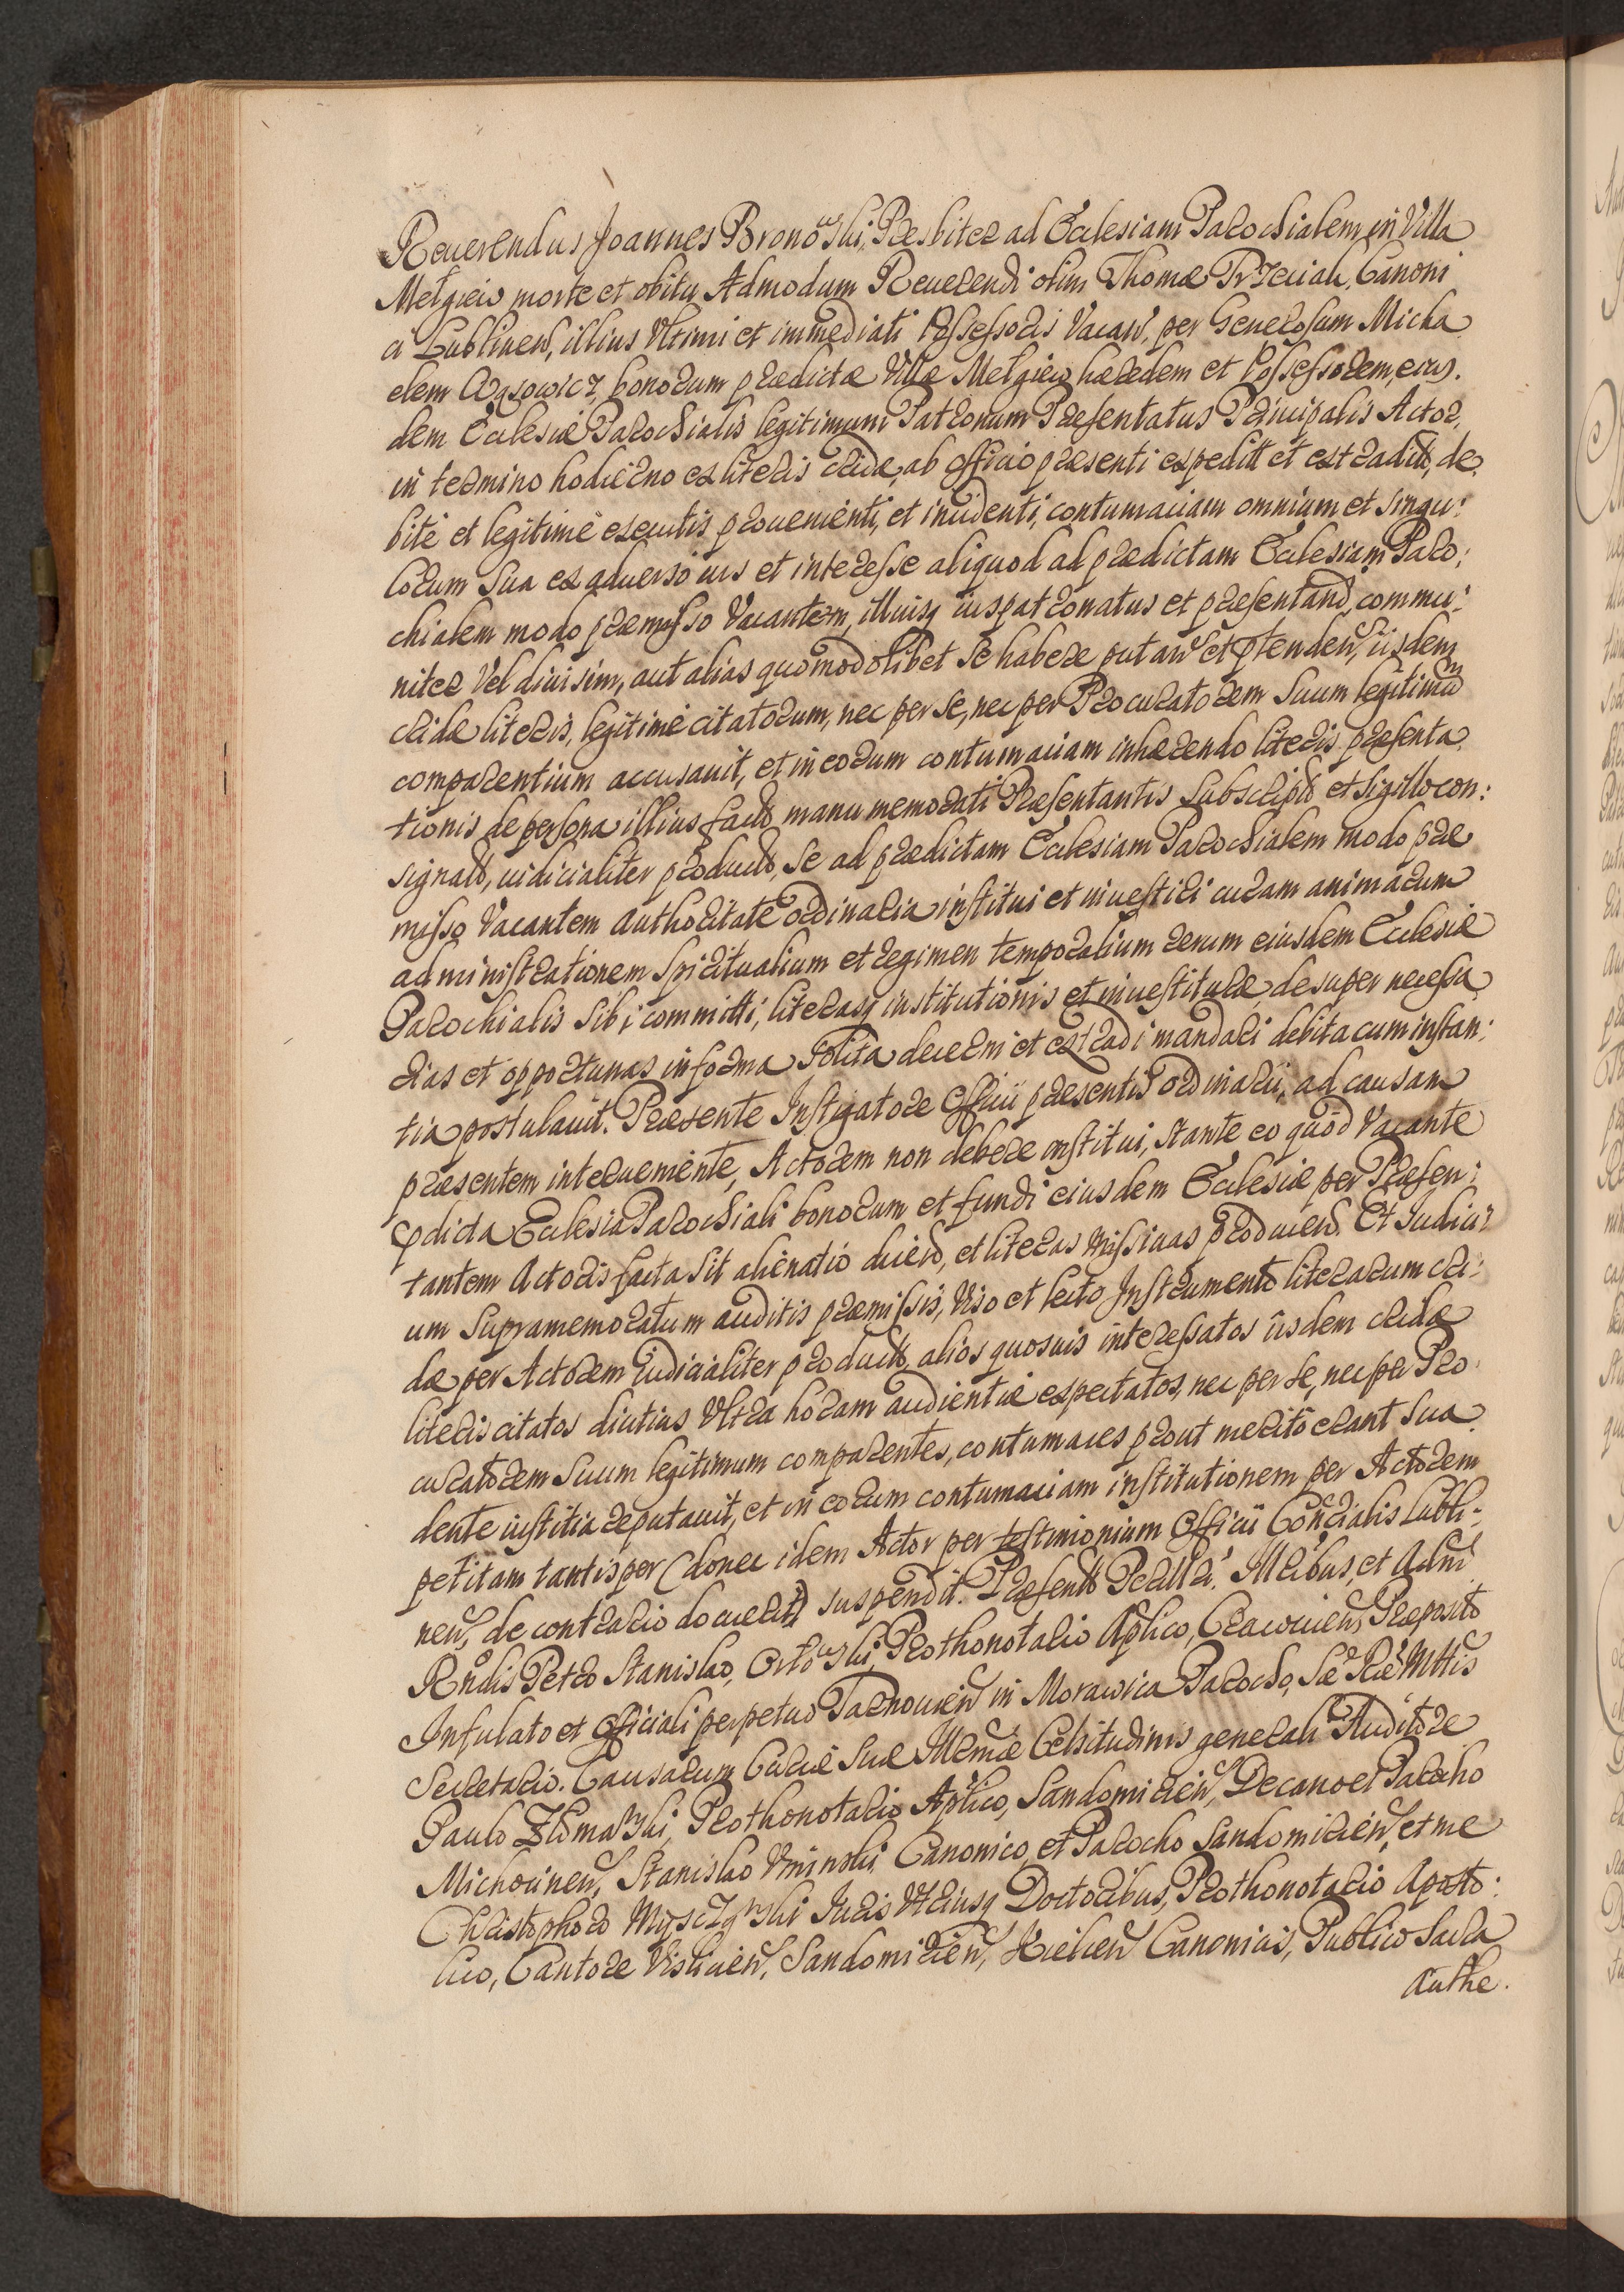 Reuerendus Joannes Bronowski, Presbiter ad Ecclesiam Parochialem in Villa
Mełgiew morte et obitu Admodum Reuerendi olim Thomæ Canoni
ci Lublinen, illius Vltimi et immediati Possessoris Vacan, per Generosum Micha
elem bonorum prædictæ Villæ Mełgiew hæredem et Possessorem, eius.
dem Ecclesiæ Parochialis legitimum Patronum Præsentatus Principalis Actor,
in termino hodierno ex literis cridæ, ab officio præsenti expedit et extradit, de,
bitè et legitimè executis prouenienti, et incidenti, contumaciam omnium et singu:
lorum sua ex aduerso ius et interesse aliquod ad prædictam Ecclesiam Paro:
chialem modo præmisso Vacantem, illiusq iuspatronatus et præsentand, commu:
niter Vel diuisim, aut alias quomodolibet se habere putan et ptenden, iisdem
cridæ literis, legitimè citatorum, nec per se, nec per Procuratorem suum legitimu
comparentium accusauit, et in eorum contumaciam inhærendo literis præsenta,
tionis de persona illius fact, manu memorati Præsentantis subscript et sigillo con:
signat, iudicialiter product, se ad prædictam Ecclesiam Parochialem modo præ
misso Vacantem authoritate ordinaria institui et inuestiri curam animarum
administrationem spiritualium et regimen temporalium rerum eiusdem Ecclesiæ
Parochialis sibi committi, literasq institutionis et inuestituræ, desuper necessa,
rias et opportunas in forma solita decerni et extradi mandari debita cum instan:
tia postulauit. Præsente Instigatore Officii præsentis ordinarii, ad causam
præsentem interueniente, Actorem non debere institui, stante eo quod Vacante
pdicta Ecclesia Parochiali bonorum et fundi eiusdem Ecclesiæ per Præsen:
tantem Actoris facta sit alienatio dicen, et literas missiuas producen. Et Judici
um supramemoratum auditis præmissis, Viso et lecto Instrumento literarum cri:
dæ per Actorem iudicialiter product, alios quosuis interessatos iisdem cridæ
literis citatos diutius Vltra horam audientiæ expectatos, nec per se, nec per Pro
curatorem suum legitimum comparentes, contumaces prout meritò erant sua,
dente iustitia reputauit, et in eorum contumaciam institutionem per Actorem
petitam tantisper (donec idem Actor per testimonium Officii Consrialis Lubli:
nen, de contrario docuerit) suspendit. Præsent Perill. Illribus, et Adm
Rndis Petro Stanislao, Orłowski, Prothonotario Aplico, Cracouien, Præposito
Infulato et Officiali perpetuo Tarnouien in Morawica Parocho, Sæ Ræ Mttis
Secretario. Causarum Curiæ Suæ Illrmæ Celsitudinis generali Auditore
Paulo Prothonotario Aplico, Sandomirien, Decano et Parocho
Michouinen, Stanislao Vminski Canonico et Parocho Sandomirien, et me
Christophoro Juris Vtriusq Doctoribus, Prothonotario Aposto:
lico, Cantore Vislicien, Sandomirien, Kielcen Canonicis, Publico Sacra
Autho.